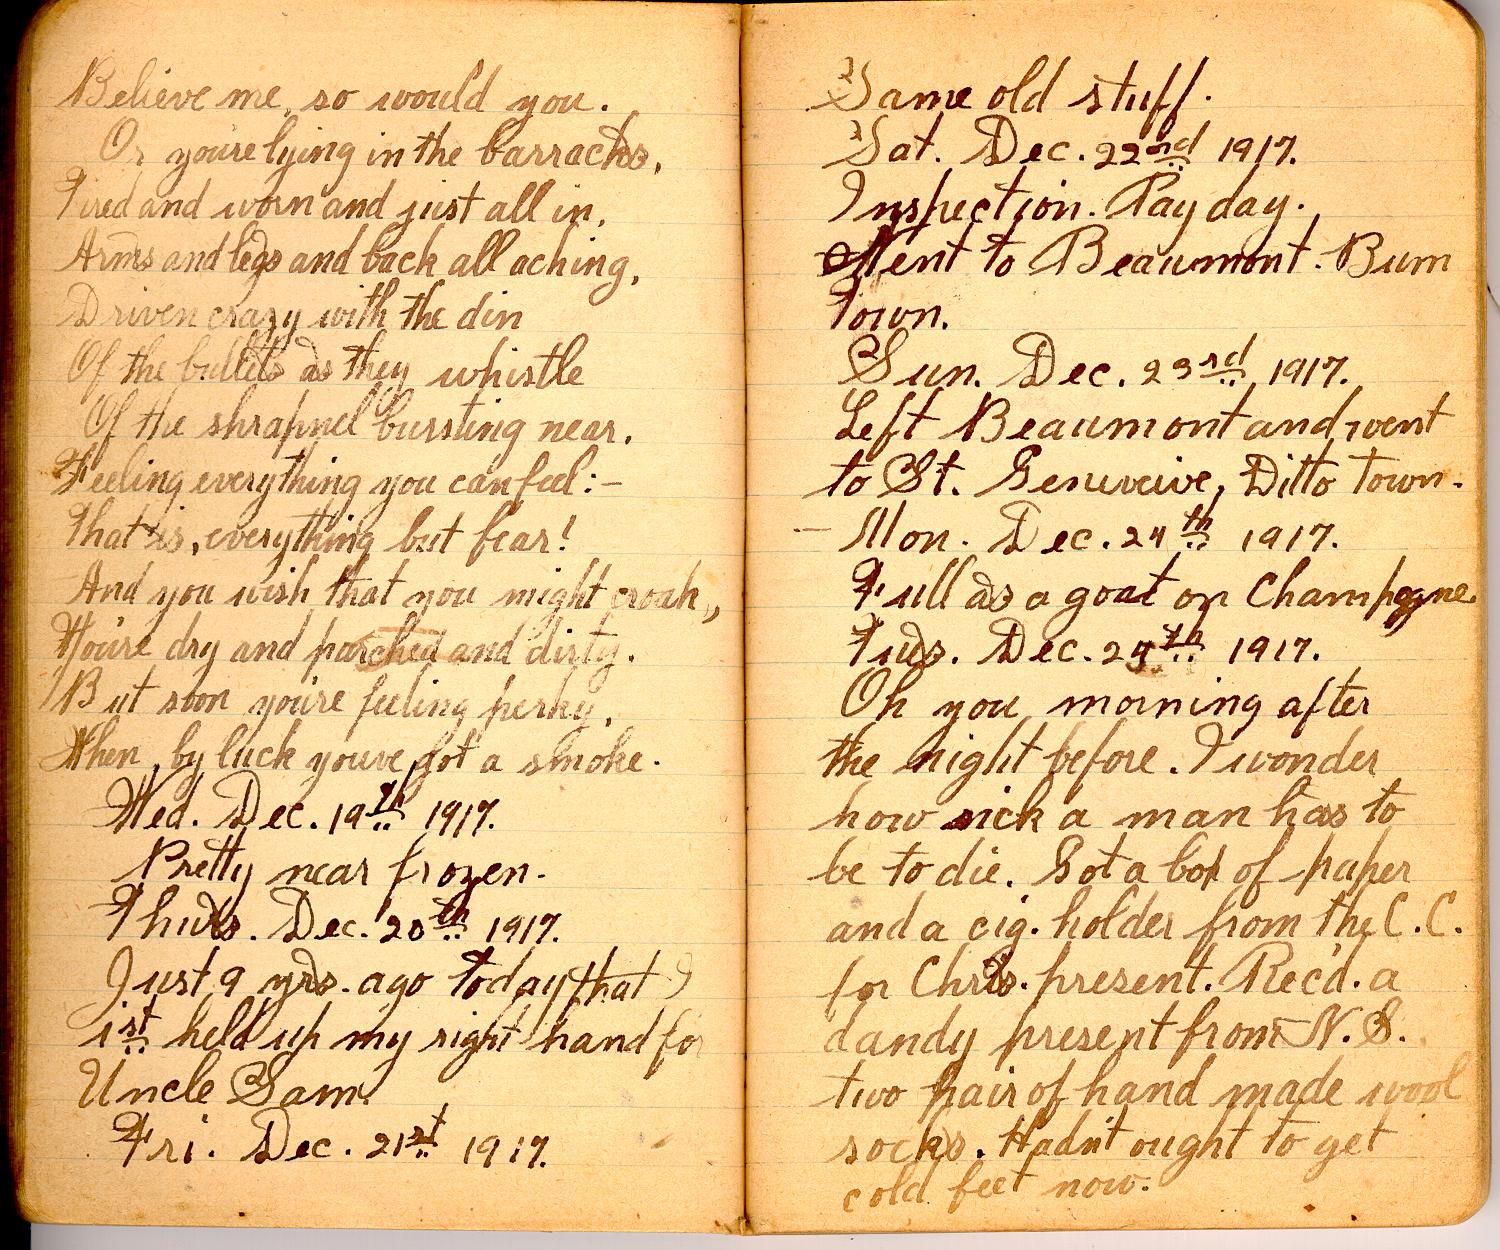 Believe me, so would you.
Or youre lying in the barracks,
Tired and worn and just all in,
Arms and legs and back all aching,
Driven crazy with the din
Of the bullets as they whistle
Of the shrapnel bursting near.
Feeling everything you can feel:-
That is, everything but fear!
And you wish that you might croak,
You're dry and parched and dirty.
But soon you're feeling perky,
When, by luck youve got a smoke.
Wed. Dec. 19th 1917.
Pretty near frozen.
Thurs. Dec. 20th 1917.
Just 9 yrs. ago today that I
1st held up my right hand for
Uncle Sam.
Fri. Dec. 21st 1917.
Same old stuff.
Sat. Dec. 22nd 1917.
Inspection. Pay day.
Went to Beaumont. Bum
Town.
Sun. Dec. 23rd 1917.
Left Beaumont and went
to St. Geneveive, Ditto town.
- Mon. Dec. 24th 1917.
Full as a goat on Champagne.
Tues. Dec. 24th 1917.
Oh you morning after
the night before. I wonder
how sick a man has to
be to die. Got a box of paper
and a cig. holder from the C.C.
for Chris. present. Rec'd. a
dandy present from N.S.
two pair of hand made wool
socks. Hadn't ought to get
cold feet now.